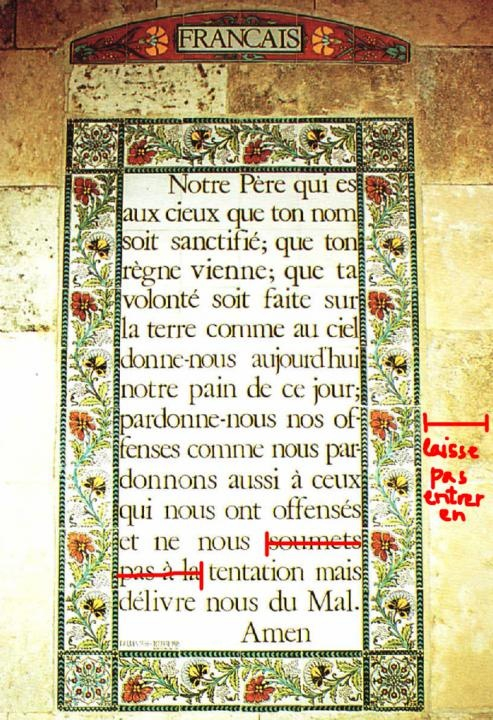 FRANCAIS
Notre Père qui es
aux cieux que ton nom
soit sanctifié; que ton
règne vienne; que ta
volonté soit faite sur
la terre comme au ciel
donne-nous aujourd'hui
notre pain de ce jour;
pardonne-nous nos of-
fenses comme nous par-
donnons aussi à ceux
qui nous ont offensés
et ne nous soumets
pas à la tentation mais
délivre nous du Mal.
Amen
laisse
pas
entrer
en